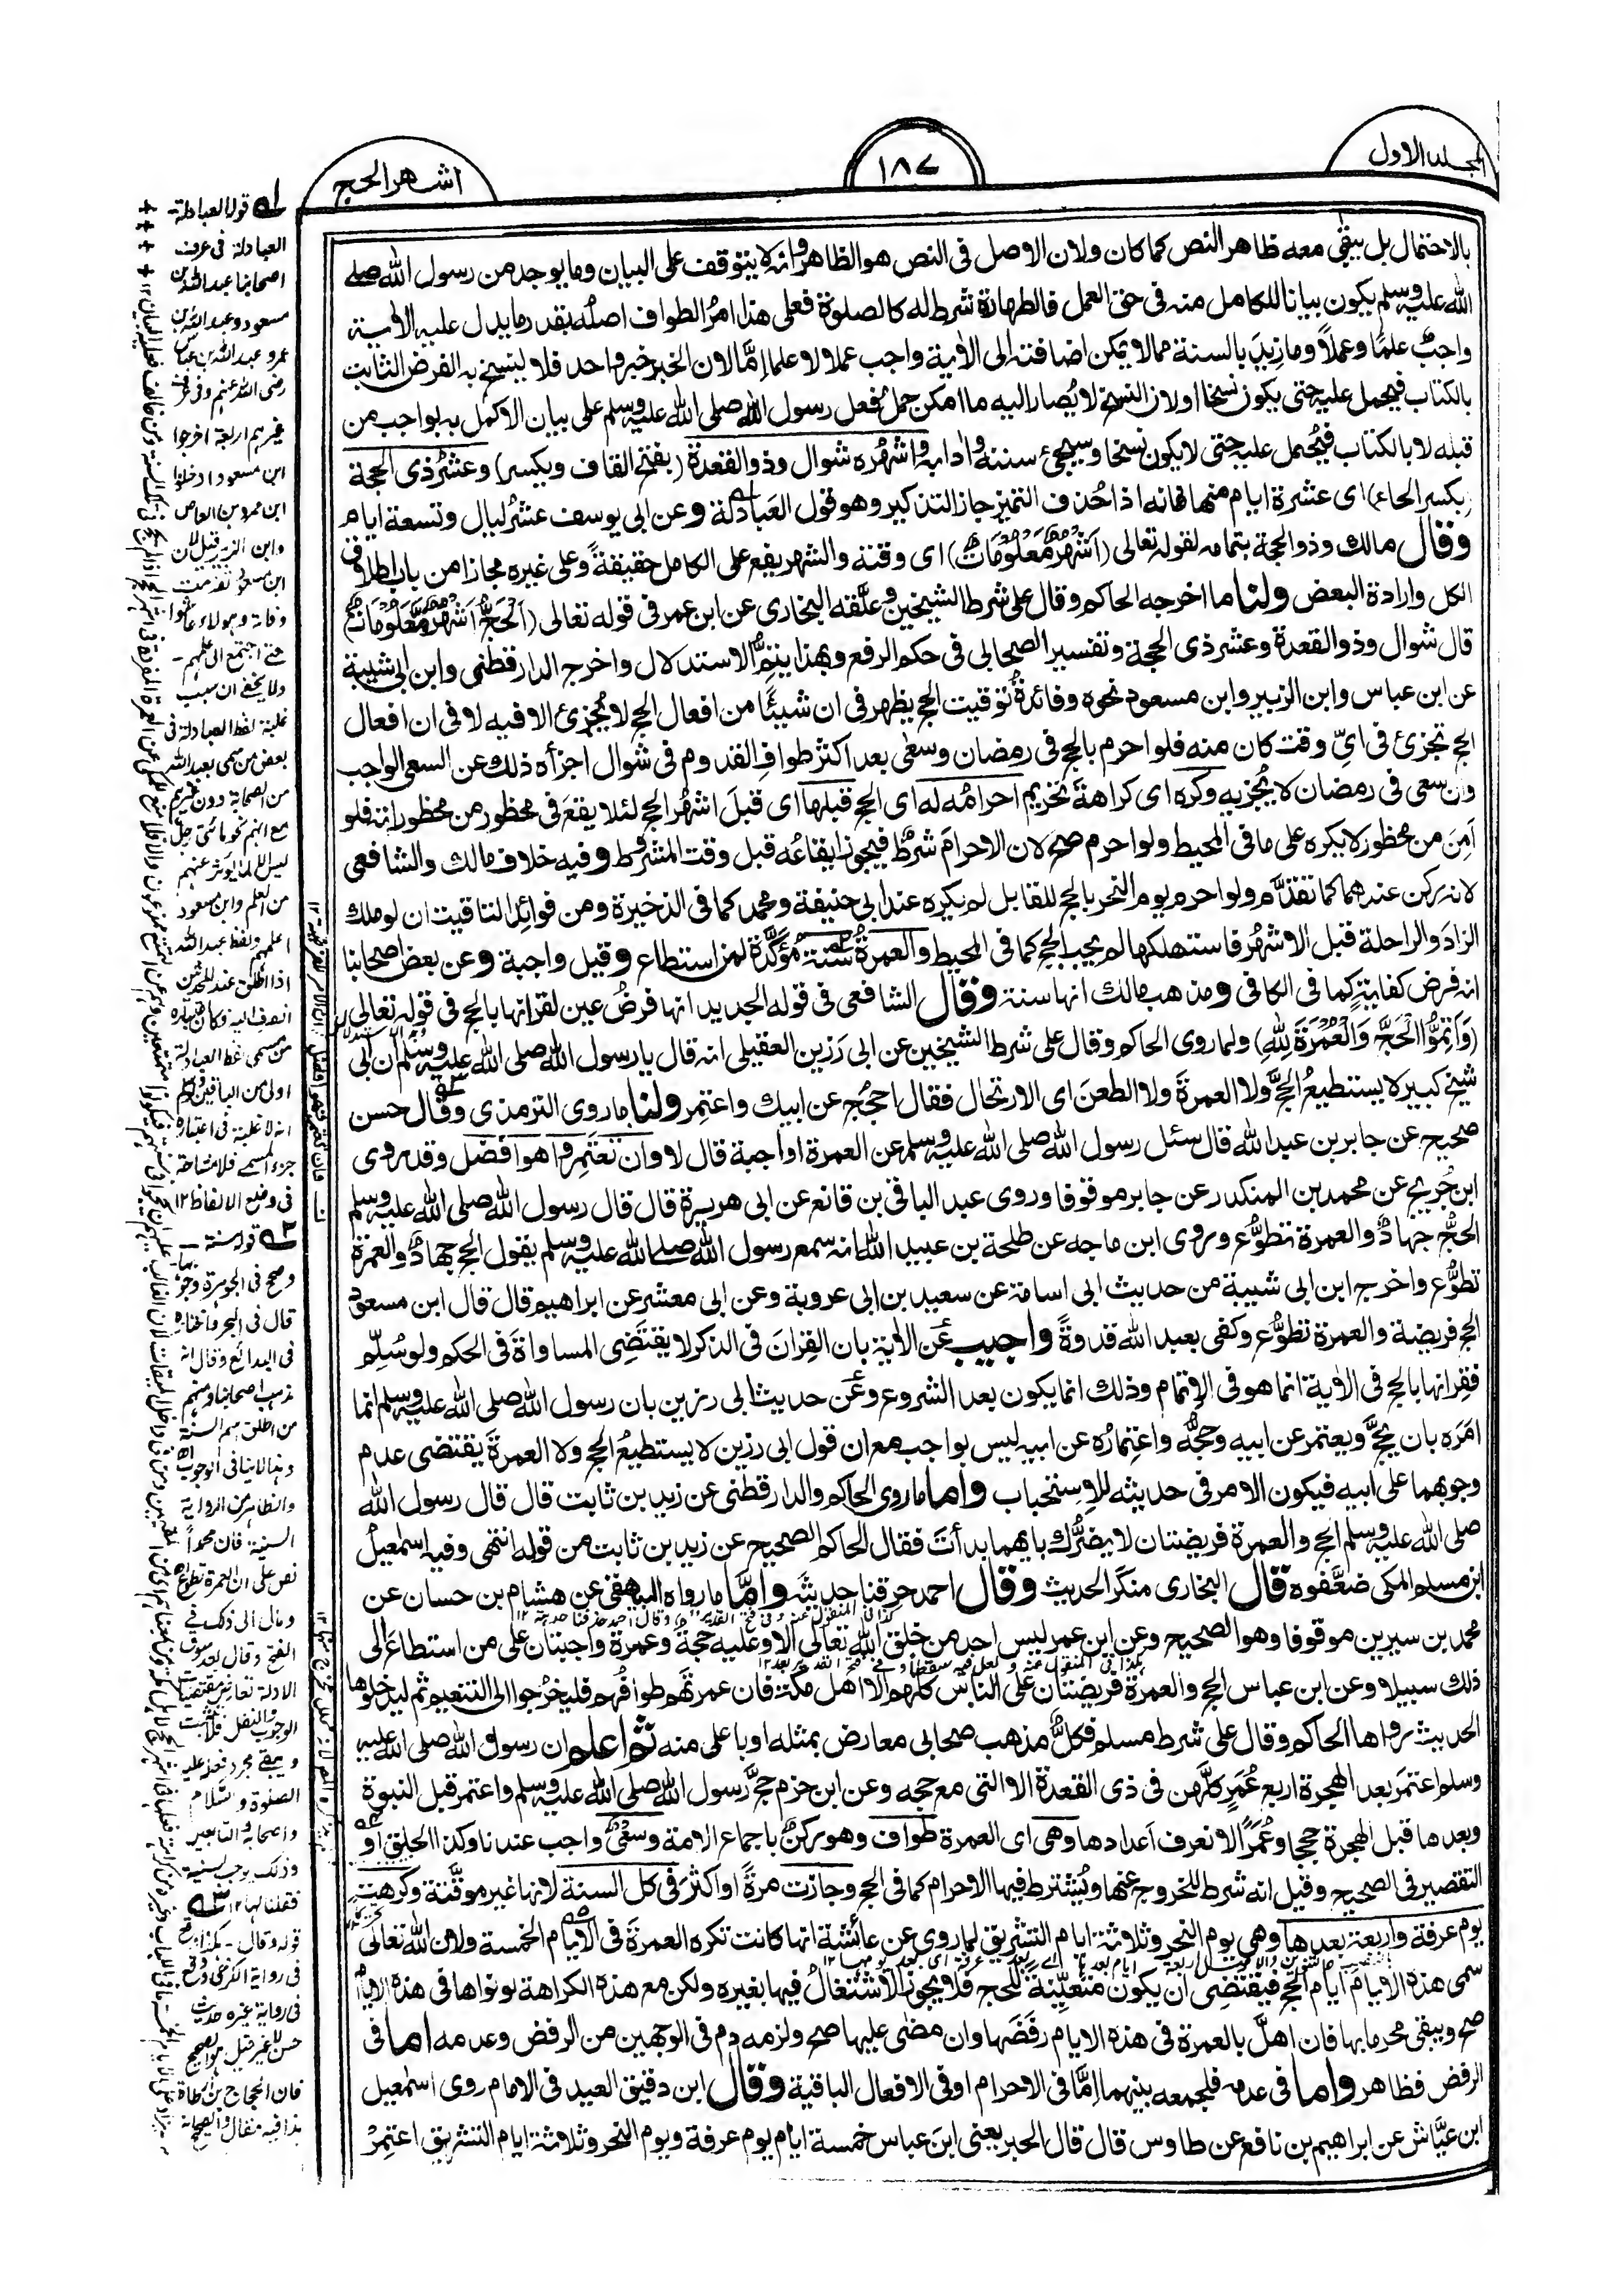 المجلد الاول
١٨٧
اشهر الحج
بالاحتمال بل يبقى معه ظاهر النص كما كان ولان الاصل في النص هو الظاهر وانه لا يتوقف على البيان وما يوجد من رسول الله صلى
الله عليه وسلم يكون بيانا للكامل منه في حق العمل فالطهارة شرط له كالصلوة فعلى هذا امر الطواف اصله بقدر ما يدل عليه الآية
واجب علمًا وعملًا وما زيد بالسنة مما لا يمكن اضافته الى الآية واجب عملا لا علما امّا لان الخبر خبر واحد فلا ينسخ به الفرض الثابت
بالكتاب فيحمل عليه حتى يكون نسخا او لان النسخ لا يُصار اليه ما امكن حمل فعل رسول الله صلى الله عليه وسلم على بيان الاكمل به بواجب من
قبله لا بالكتاب فيُحمل عليه حتى لا يكون نسخا وسيجئ سننه وآدابه واشهُره شوال وذو القعدة (بفتح القاف ويكسر) وعشرُ ذى الحجة
(بكسر الحاء) اى عشرة ايام منها فانه اذا حُذف التميز جاز التذكير وهو قول العَبادلة وعن ابي يوسف عشرُ ليال وتسعة ايام
وقال مالك وذو الحجة بتمامه لقوله تعالى (اَشْهُرٌ مَّعْلُومَاتٌ) اى وقته والشهر يقع على الكامل حقيقةً وعلى غيره مجازا من باب اطلاق
الكل وارادة البعض ولنا ما اخرجه الحاكم وقال على شرط الشيخين وعلّقه البخارى عن ابن عمر في قوله تعالى (اَلْحَجُّ اَشْهُرٌ مَّعْلُومَاتٌ)
قال شوال وذو القعدة وعشر ذى الحجة وتفسير الصحابى في حكم الرفع وبهذا يتمُّ الاستدلال واخرج الدارقطنى وابن ابى شيبة
عن ابن عباس وابن الزبير وابن مسعود نحوه وفائدةُ توقيت الحج يظهر في ان شيئًا من افعال الحج لا يُجزئ الا فيه لا في ان افعال
الحج تجزئ في اىّ وقت كان منه فلو احرم بالحج في رمضان وسعى بعد اكثر طوافِ القدوم في شوال اجزأه ذلك عن السعى الواجب
وان سعى في رمضان لا يُجزيه وكره اى كراهةَ تحريم احرامُه له اى الحج قبلها اى قبلَ اشهُر الحج لئلا يقعَ في محظور من محظوراته فلو
اَمِنَ من محظور لا يكره على ما في المحيط ولو احرم صح لان الاحرامَ شرطٌ فيجوز ايقاعُه قبل وقت المشروط وفيه خلاف مالك والشافعى
لانه ركن عندهما كما تقدّم ولو احرم يوم النحر بالحج للقابل لم يكره عند ابى حنيفة ومحمد كما في الذخيرة ومن فوائد التاقيت ان لو ملك
الزادَ والراحلة قبل الاشهُر فاستهلكها لم يجب الحج كما في المحيط والعمرةُ سُنّة مُؤكَّدة لمن استطاع وقيل واجبة وعن بعض اصحابنا
انه فرض كفايةٍ كما في الكافى ومذهب مالك انها سنة وقال الشافعى في قوله الجديد انها فرضُ عين لقرانها بالحج في قوله تعالى
(وَاَتِمُّوا الْحَجَّ وَالْعُمْرَةَ لِلّٰهِ) ولما روى الحاكم وقال على شرط الشيخين عن ابى رَزين العقيلى انه قال يا رسول الله صلى الله عليه وسلم اِن ابى
شيخ كبير لا يستطيعُ الحجَّ ولا العمرةَ ولا الظعنَ اى الارتحال فقال احجُج عن ابيك واعتمِر ولنا ما روى الترمذى وقال حسن
صحيح عن جابر بن عبد الله قال سئل رسول الله صلى الله عليه وسلم عن العمرة اواجبة قال لا وان تعتمِروا هو افضل وقد روى
ابن جُريج عن محمد بن المنكدر عن جابر موقوفا وروى عبد الباقى بن قانع عن ابى هريرة قال قال رسول الله صلى الله عليه وسلم
الحجّ جهادٌ والعمرة تطوُّع وروى ابن ماجه عن طلحة بن عبيد الله انه سمع رسول الله صلى الله عليه وسلم يقول الحج جهادٌ والعمرة
تطوُّع واخرج ابن ابى شيبة من حديث ابى اسامة عن سعيد بن ابى عروبة وعن ابى معشر عن ابراهيم قال قال ابن مسعود
الحج فريضة والعمرة تطوُّع وكفى بعبد الله قدوةً واجيب عن الآية بان القِرانَ في الذكر لا يقتضِى المساواةَ في الحكم ولو سُلّم
فقِرانها بالحج في الآية انما هو في الاتمام وذلك انما يكون بعد الشروع وعن حديث ابى رزين بان رسول الله صلى الله عليه وسلم انما
امَرَه بان يحُجَّ ويعتمر عن ابيه وحجُّه واعتمارُه عن ابيه ليس بواجب مع ان قول ابى رزين لا يستطيعُ الحج ولا العمرةَ يقتضى عدم
وجوبهما على ابيه فيكون الامر في حديثه للاستحباب واما ما روى الحاكم والدارقطنى عن زيد بن ثابت قال قال رسول الله
صلى الله عليه وسلم الحج والعمرة فريضتان لا يضرُّك بايهما بدأتَ فقال الحاكم الصحيح عن زيد بن ثابت من قوله انتهى وفيه اسمعيلُ
ابن مسلم المكى ضعَّفوه قال البخارى منكر الحديث وقال احمد حرقنا حديثه وامّا ما رواه البيهقى عن هشام بن حسان عن
محمد بن سيرين موقوفا وهو الصحيح وعن ابن عمر ليس احد من خلق الله تعالى الا وعليه حجةٌ وعمرة واجبتان على من استطاعَ الى
ذلك سبيلا وعن ابن عباس الحج والعمرة فريضتان على الناس كلهم الا اهل مكة فان عمرتهم طوافُهم فليخرُجوا الى التنعيم ثم ليدخلوها
الحديث رواها الحاكم وقال على شرط مسلم فكلُّ مذهب صحابى معارض بمثله او باعلى منه ثم اعلم ان رسول الله صلى الله عليه
وسلم اعتمَر بعد الهجرة اربع عُمَرٍ كلّهن في ذى القعدة الا التى مع حجه وعن ابن حزم حجَّ رسول الله صلى الله عليه وسلم واعتمر قبل النبوة
وبعدها قبل الهجرة حججا وعُمَرًا لا نعرف اعدادها وهى اى العمرة طواف وهو ركنٌ باجماع الامة وسعىٌ واجب عندنا وكذا الحلق او
التقصير في الصحيح وقيل انه شرط للخروج عنها ويُشترط فيها الاحرام كما في الحج وجازت مرةً او اكثرَ في كل السنة لانها غير موقّتة وكرهت
يوم عرفة واربعة بعدها وهى يوم النحر وثلاثة ايام التشريق لما روى عن عائشة انها كانت تكره العمرةَ في الايام الخمسة ولان الله تعالى
سمى هذه الايام ايام الحج فيقتضِى ان يكون متعيّنة للحج فلا يجوز الاشتغالُ فيها بغيره ولكن مع هذه الكراهة لو نواها في هذه الايام
صح ويبقى محرما بها فان اهلَّ بالعمرة في هذه الايام رفضَها وان مضى عليها صح ولزمه دم في الوجهين من الرفض وعدمه اما في
الرفض فظاهر واما في عدمه فلجمعه بينهما اِمّا في الاحرام او في الافعال الباقية وقال ابن دقيق العيد في الامام روى اسمعيل
ابن عيَّاش عن ابراهيم بن نافع عن طاوس قال قال الحبر يعنى ابنَ عباس خمسة ايام يوم عرفة ويوم النحر وثلاثة ايام التشريق اعتمِرْ
قوله العبادلة
العبادلة في عرف
اصحابنا عبد الله بن
مسعود وعبد الله بن
عمر وعبد الله بن عباس
رضى الله عنهم وفى عرف
غيرهم اربعة اخرجوا
ابن مسعود وادخلوا
ابن عمرو بن العاص
وابن الزبير قيل لان
ابن مسعود تقدمت
وفاته وهؤلاء عاشوا
حتى احتيج الى علمهم
ولا يخفى ان سبب
غلبة لفظ العبادلة في
بعض من سمى بعبد الله
من الصحابة دون غيرهم
مع انهم نحو مائتى رجل
ليس الا لما يؤثر عنهم
من العلم وابن مسعود
اعلمهم ولفظ عبد الله
اذا اطلق عند المحدثين
انصرف اليه وكان اعتباره
من مسمى لفظ العبادلة
اولى من الباقين
في وضع الالفاظ ١٢
قوله سنة
وصح في الجوهرة وجوبها
قال في البحر واختاره
في البدائع وقال انه
مذهب اصحابنا ومنهم
من اطلق اسم السنة
وهذا لا ينافى الوجوب
والظاهر من الرواية
السنية فان محمدا
نص على ان العمرة تطوع
ومال الى ذلك في
الفتح وقال بعد سوق
الادلة تعارض مقتضيات
الوجوب والنفل فلا يثبت
ويبقى مجرد فعله عليه
الصلوة والسلام
واصحابه والتابعين
وذلك يوجب السنية
فقلنا بها ١٢
قوله وقال
في رواية الكرخى ووقع
في رواية غيره حديث
حسن لا غير قيل هو الصحيح
فان الحجاج بن ارطاة
هذا فيه مقال